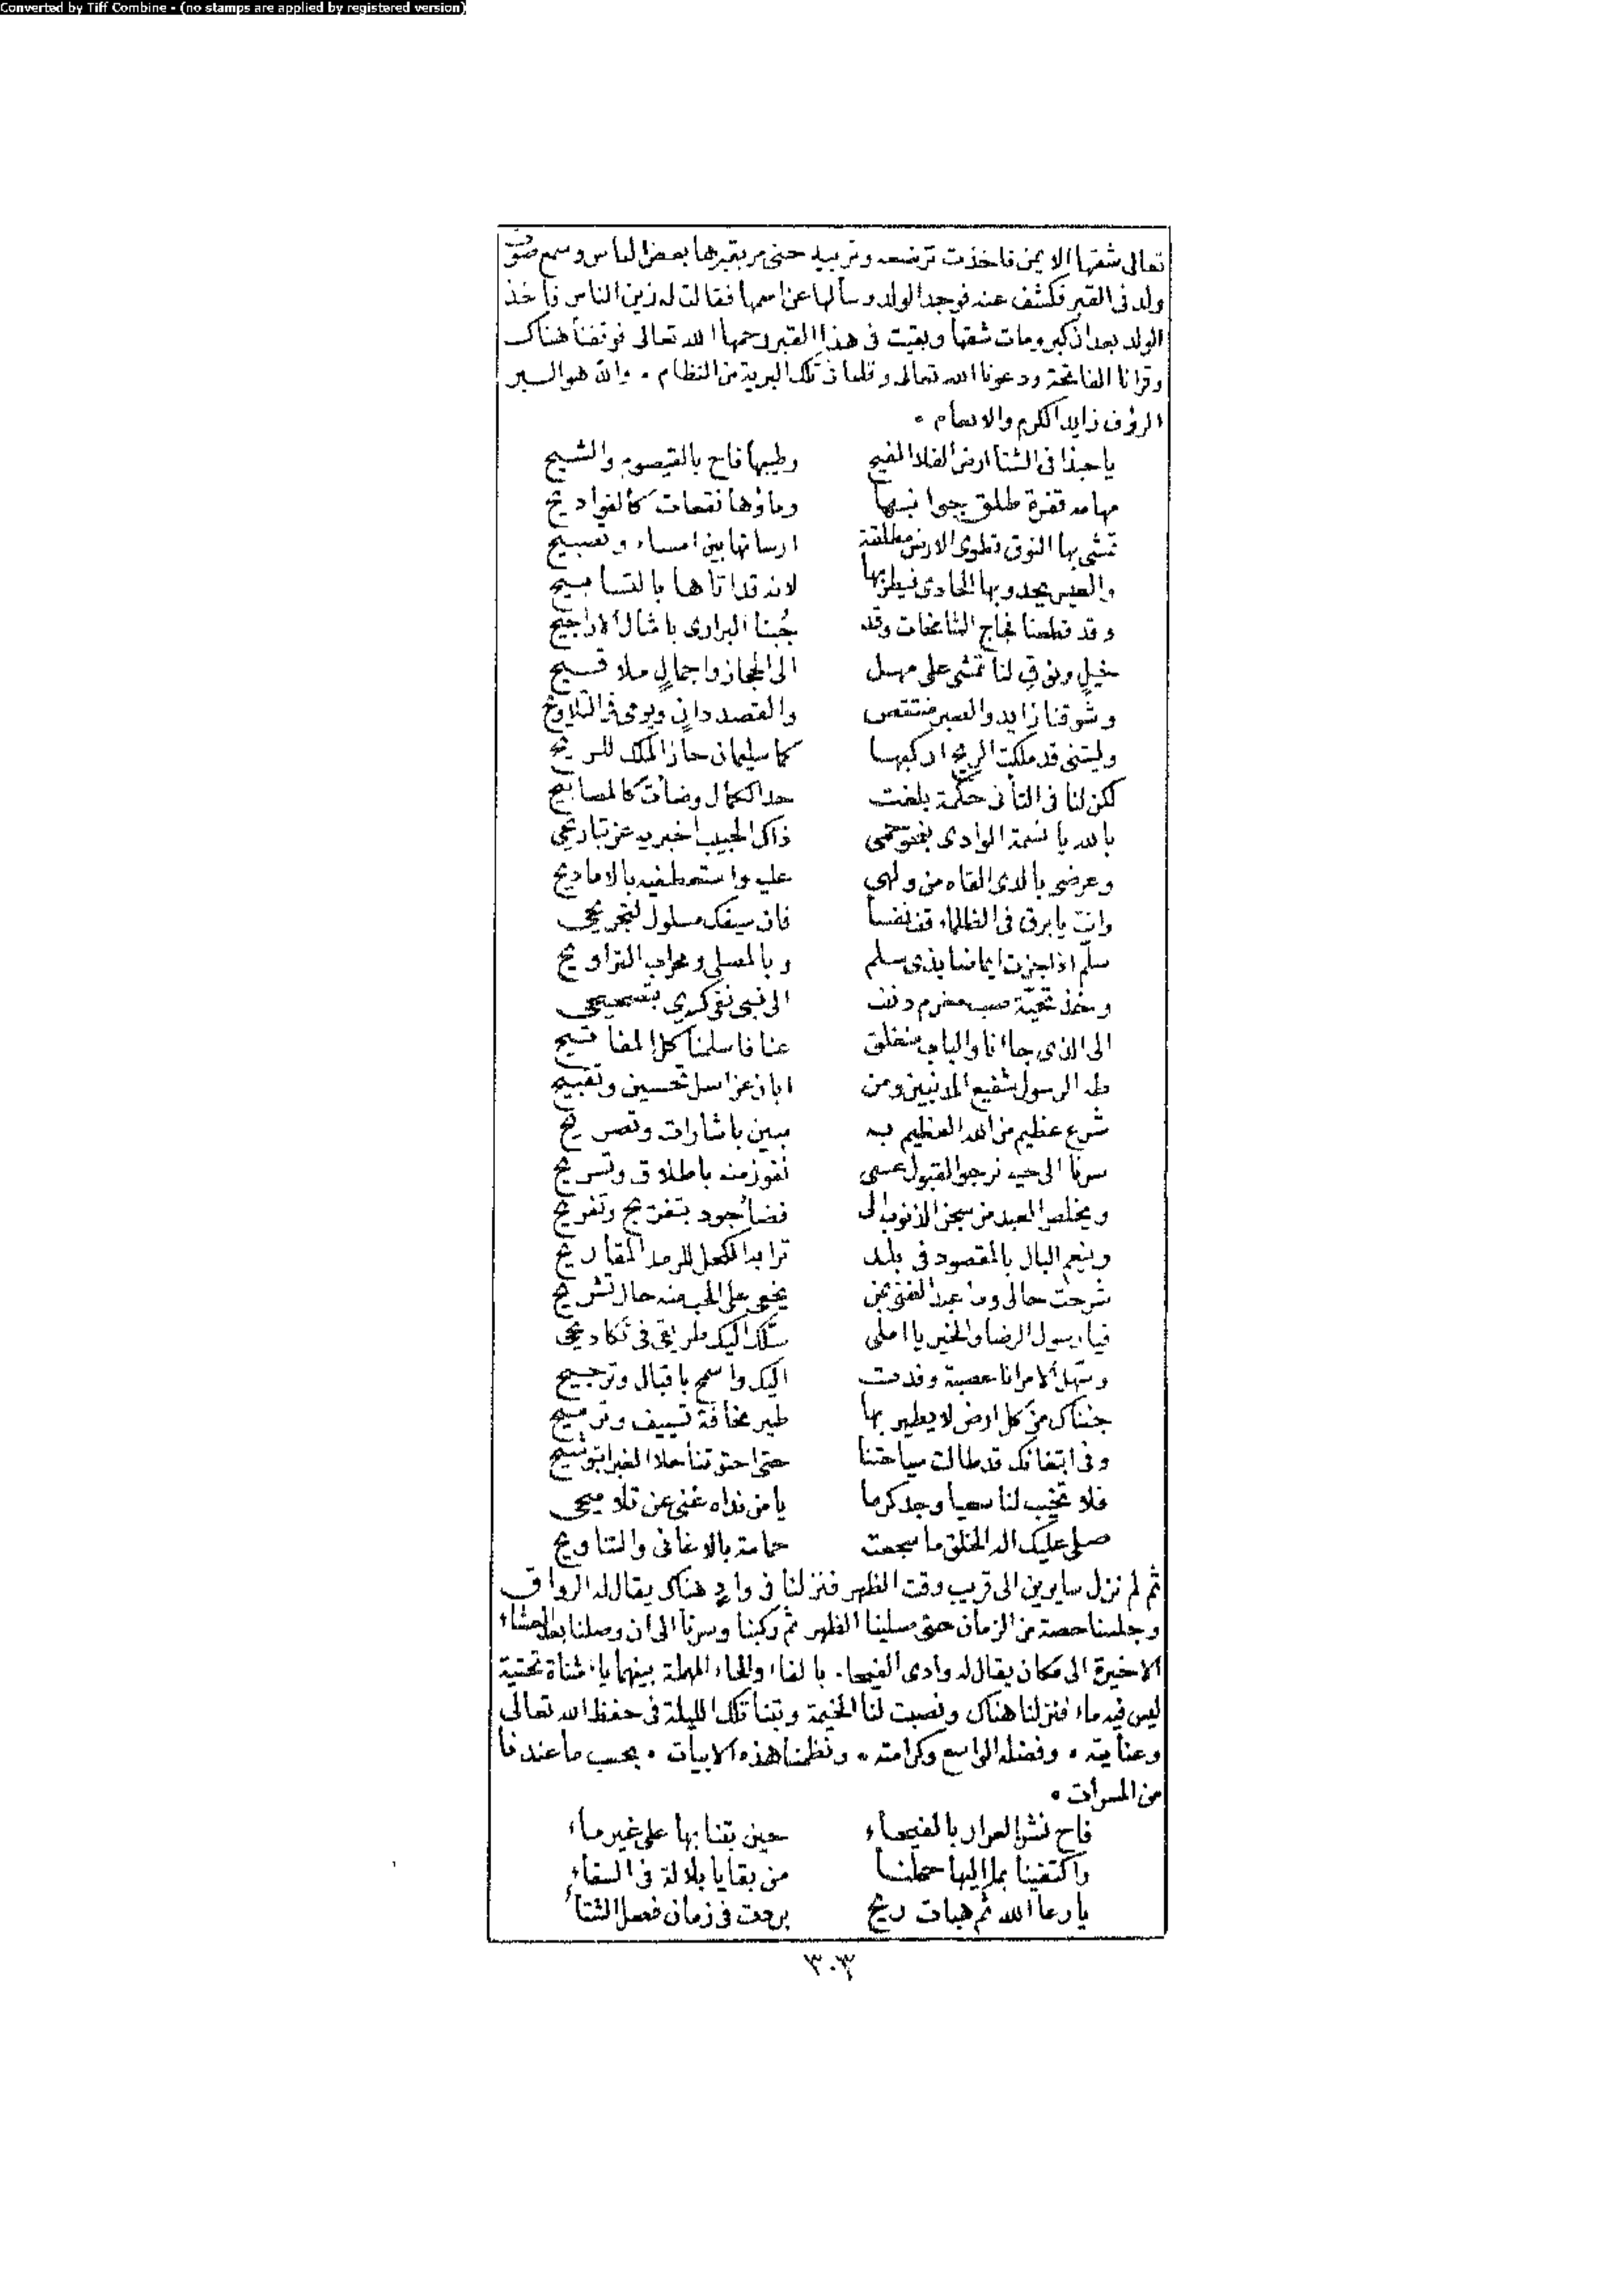 Converted by Tiff Combine - (no stamps are applied by registered version)
تعالى شقها الايمن فاخذت ترضعه وتربيه حتى مر بقبرها بعض الناس وسمع صوت
ولد فى القبر فكشف عنه فوجد الولد وسألها عن اسمها فقالت له زين الناس فأخذ
الولد بعد ان كبر ومات شقها وبقيت فى هذا القبر رحمها الله تعالى فوقفنا هناك
وقرانا الفاتحة ودعونا الله تعالى وقلنا فى تلك البرية من النظام • والله هو البر
الرؤف زايد الكرم والانعام •
يا حبذا فى الشتا ارض الفلا الفيح وطيبها فاح بالقيصوم والشيح
مهامه قفرة طلق جوانبها وماؤها نقعات كالفواديح
تمشى بها النوق تطوى الارض مطلقة ارسانها بين امساء وتصبيح
والعيس يحدو بها الحادى فيطربها لانه قد اتاها بالتسابيح
وقد قطعنا فجاج الشامخات وقد جُبنا البرارى بامثال الاراجيح
خيلٍ ونوقٍ لنا تمشى على مهل الى الحجاز واجمالٍ ملاقيح
وشوقنا زايد والصبر منتقص والقصد دانٍ ويومى فى التلاويح
وليتنى قد ملكت الريح اركبها كما سليمان حاز الملك للريح
لكن لنا فى التأنى حكمة بلغت حد الكمال وضأت كالمصابيح
بالله يا نسمة الوادى بفوحمى ذاك الحبيب اخبريه عن تباريحى
وعرضى بالذى القاه من ولهى عليه واستعطفيه بالاماديح
وانت يا برق فى الظلماء قف نفسا فان سيفك مسلول لتجريحى
سلّم اذا جزت ايماضا بذى سلم وبالمصلى ومحراب التراويح
وخذ تحيّة صب مغرم دنف الى نبى نفى كربى بتصحيحى
الى الذى جاءنا والباب منغلق عنا فاسلمنا كل المفاتيح
طه الرسول شفيع المذنبين ومن ابان عن اصل تحسين وتقبيح
شرع عظيم من الله العظيم به مبين باشارات وتصريح
سرنا الى حيه نرجو القبول عسى نفوز منه باطلاق وتسريح
ويخلص العبد من سجن الذنوب الى فضا جود بتفريج وتفريح
وينعم البال بالمقصود فى بلد ترابه الكحل للرمد المقاريح
شرحت حالى وما عبد الغنى بمن يخفى على الحب منه حال تشريح
فيا رسول الرضا والخير يا املى سلك اليك طريقى فى تكاديحى
وسهل الامر انا عصبة وفدت اليك واسمح باقبال وترجيح
جئناك من كل ارض لا يطير بها طير مخافة تسييف وترميح
وفى ابتغائك قد طالت سياحتنا حتى احتوتنا ملا الغبرا بتوشيح
فلا تخيب لنا سعيا وجد كرما يا من نداه غنى عن تلويحى
صلى عليك اله الخلق ما سجعت حمامة بالاغانى والتناويح
ثم لم نزل سايرين الى قريب وقت الظهر فنزلنا فى وادٍ هناك يقال له الرواق
وجلسنا حصة من الزمان حتى صلينا الظهر ثم ركبنا وسرنا الى ان وصلنا بعد العشاء
الاخيرة الى مكان يقال له وادى الفيحاء بالفاء والحاء المهملة بينهما ياء مثناة تحتية
ليس فيه ماء فنزلنا هناك ونصبت لنا الخيمة وبتنا تلك الليلة فى حفظ الله تعالى
وعنايته • وفضله الواسع وكرامته • ونظمنا هذه الابيات • بحسب ما عندنا
من المسرات •
فاح نشر العرار بالفيحاء حين بتنا بها على غير ماء
واكتفينا بما اليها حملنا من بقايا بلالة فى السقاء
يا رعا الله ثم هبات ريح بردت فى زمان فصل الشتاء
٣٠٣